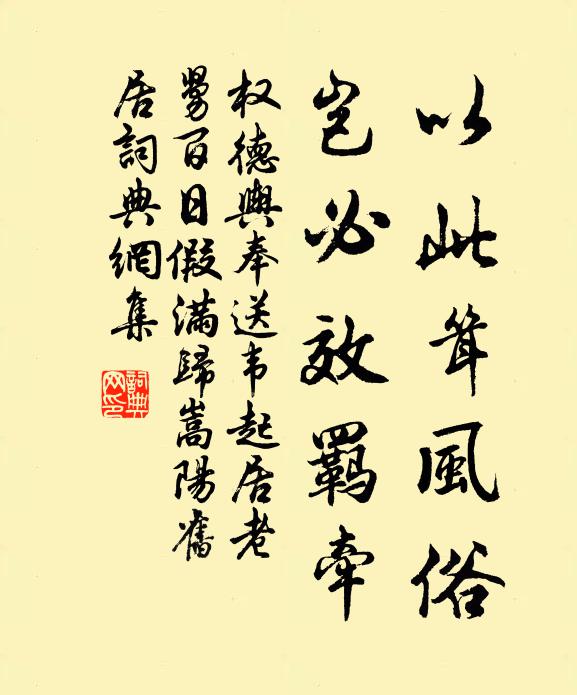 以此耸風俗
岂必效羁牽
权德輿奉送韦起居老
舅百日假满歸嵩陽舊
居詞典網集
詞典网印